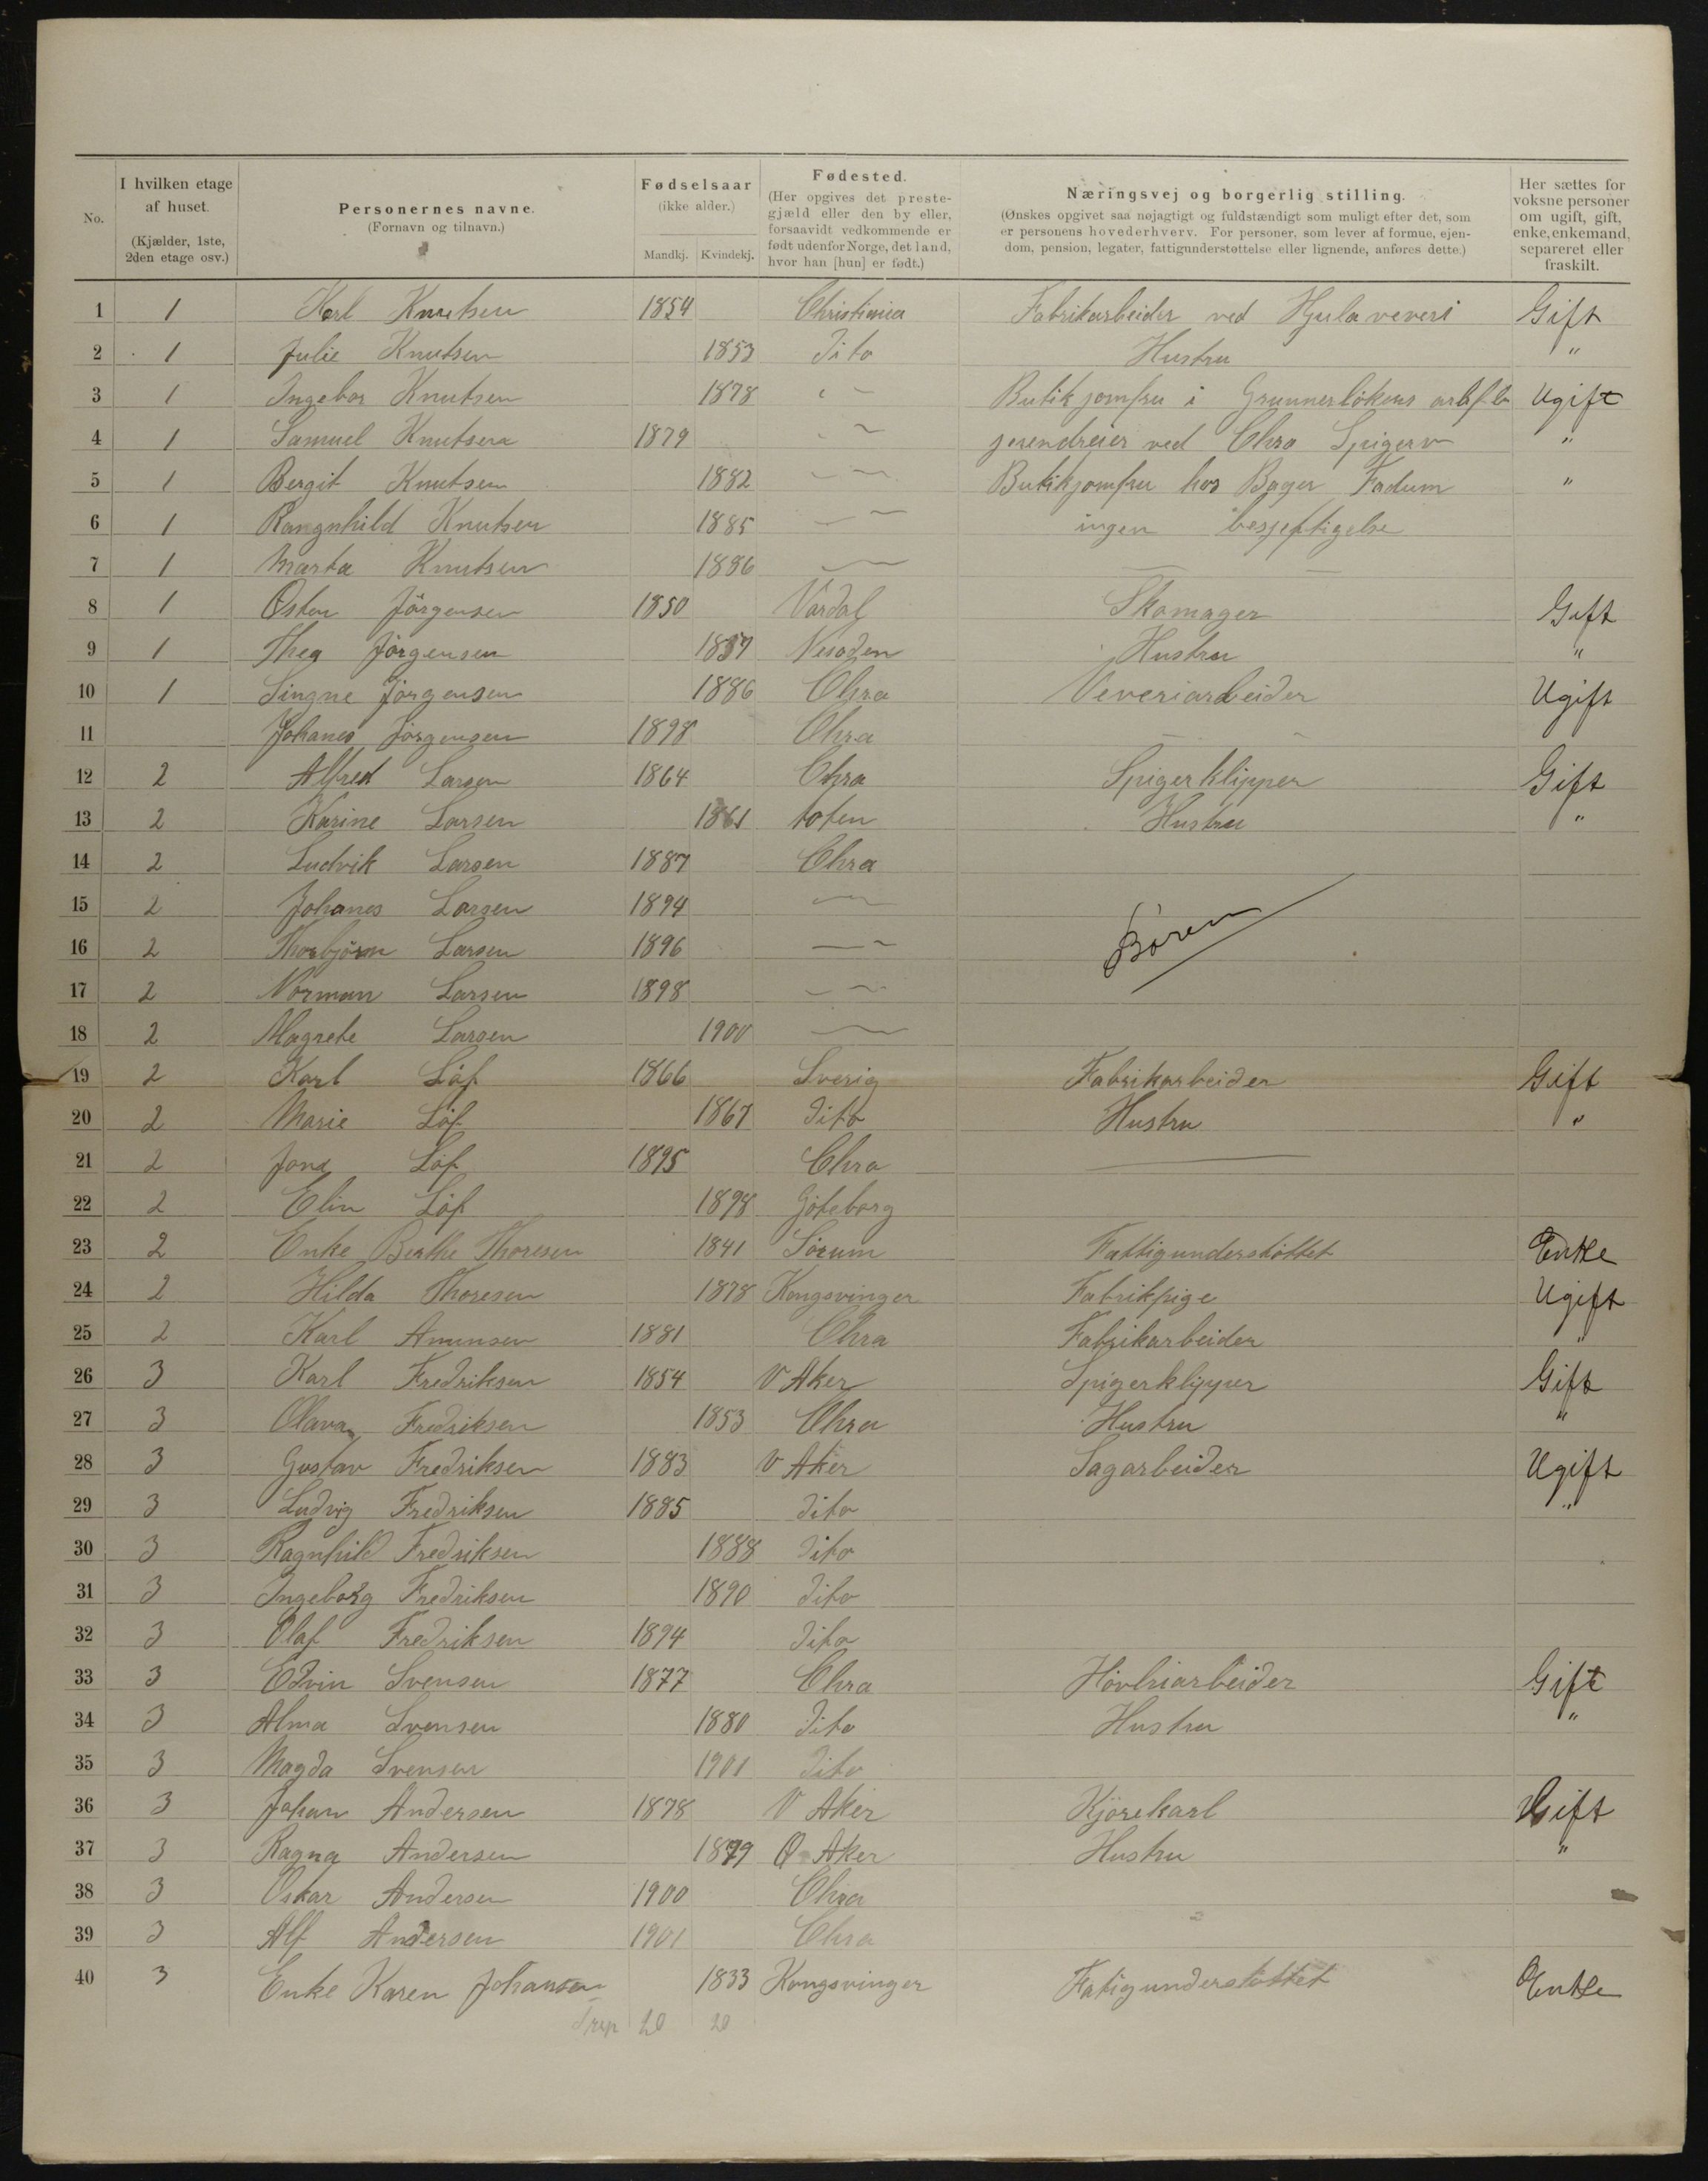 No.
I hvilken etage af huset. (Kjælder, 1ste, 2den etage osv.)
Personernes navne. (Fornavn og tilnavn.)
Fødselsaar (ikke alder.) Mandkj. Kvindekj.
Fødested. (Her opgives det prestegjæld eller den by eller, forsaavidt vedkommende er født udenfor Norge, det land, hvor han [hun] er født.)
Næringsvej og borgerlig stilling. (Ønskes opgivet saa nøjagtigt og fuldstændigt som muligt efter det, som er personens hovederhverv. For personer, som lever af formue, ejendom, pension, legater, fattigunderstøttelse eller lignende, anføres dette.)
Her sættes for voksne personer om ugift, gift, enke, enkemand, separeret eller fraskilt.
1 1 Karl Knutsen 1854 Christiania Fabrikarbeider ved Hjula veveri Gift
2 1 Julie Knutsen 1853 Dito Hustru "
3 1 Ingebor Knutsen 1878 " — Butikjomfru i Grunnerløkens Ugift
4 1 Samuel Knutsen 1879 — ved Chra Spigerv "
5 1 Bergit Knutsen 1882 — Butikjomfru hos Bager Fadum "
6 1 Rangnhild Knutsen 1885 — ingen besjeftigelse
7 1 Marta Knutsen 1886 — — —
8 1 Østen Jörgensen 1850 Vardal Skomager Gift
9 1 Thea Jörgensen 1857 Nesodden Hustru "
10 1 Singne Jörgensen 1886 Chra Veveriarbeider Ugift
11 Johanes Jörgensen 1898 Chra — —
12 2 Alfred Larsen 1864 Chra Spigerklipper Gift
13 2 Karine Larsen 1861 toten Hustru "
14 2 Ludvik Larsen 1887 Chra
15 2 Johanes Larsen 1894 —
16 2 Thorbjörn Larsen 1896 — Børen
17 2 Norman Larsen 1898 —
18 2 Magrete Larsen 1900 —
19 2 Karl Löf 1866 Sverig Fabrikarbeider Gift
20 2 Marie Löf 1867 Dito Hustru "
21 2 Jona Löf 1895 Chra —
22 2 Elin Löf 1898 Göteborg
23 2 Enke Berthe Thoresen 1841 Sörum Fattigunderstöttet Enke
24 2 Hilda Thoresen 1878 Kongsvinger Fabrikpige Ugift
25 2 Karl Amunsen 1881 Chra Fabrikarbeider "
26 3 Karl Fredriksen 1854 V Aker Spigerklipper Gift
27 3 Olava Fredriksen 1853 Chra Hustru "
28 3 Gustav Fredriksen 1883 V Aker Sagarbeider Ugift
29 3 Ludvig Fredriksen 1885 Dito "
30 3 Ragnhild Fredriksen 1888 Dito
31 3 Ingeborg Fredriksen 1890 Dito
32 3 Olaf Fredriksen 1894 Dito
33 3 Edvin Svensen 1877 Chra Hövleriarbeider Gift
34 3 Alma Svensen 1880 Dito Hustru "
35 3 Magda Svensen 1901 Dito
36 3 Johan Andersen 1878 V Aker Kjörekarl Gift
37 3 Ragna Andersen 1879 Ø Aker Hustru "
38 3 Oskar Andersen 1900 Chra
39 3 Alf Andersen 1901 Chra
40 3 Enke Karen Johansen 1833 Kongsvinger Fatigunderstöttet Enke
20 20